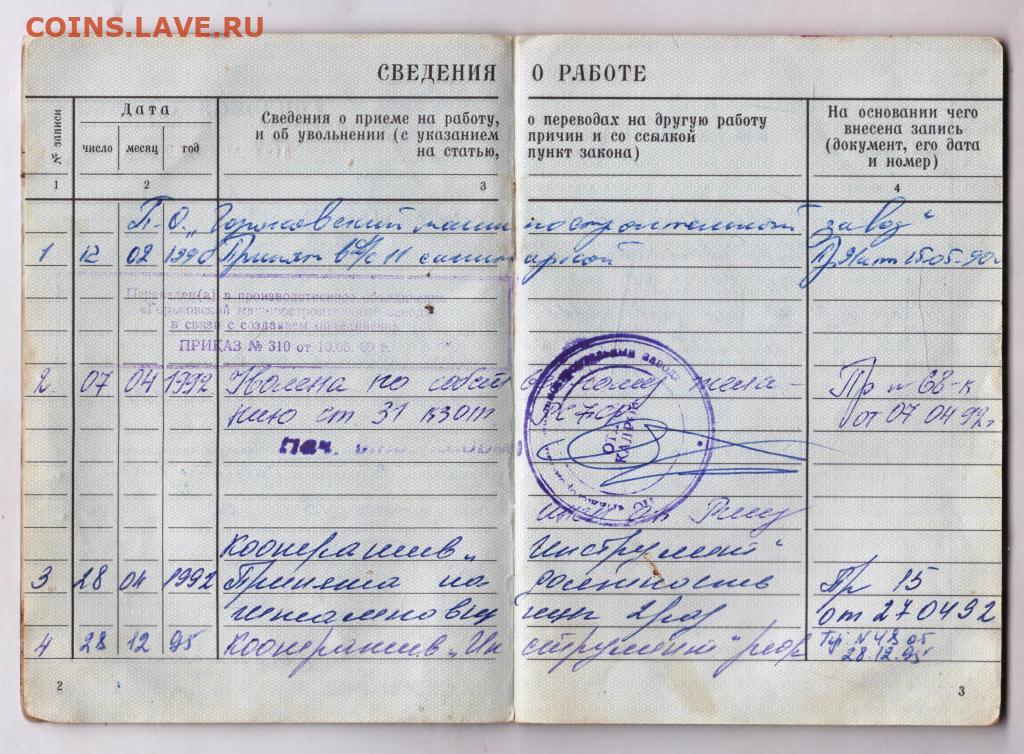 COINS.LAVE.RU
СВЕДЕНИЯ О РАБОТЕ
№ записи
Дата
число месяц год
Сведения о приеме на работу, о переводах на другую работу
и об увольнении (с указанием причин и со ссылкой
на статью, пункт закона)
На основании чего
внесена запись
(документ, его дата
и номер)
1 2 3 4
П.О. „Горьковский машиностроительный завод"
1 12 02 1990 Принят 11
Переведен(а) в производственное объединение
«Горьковский машиностроительный завод»
в связи с созданием объединения
ПРИКАЗ № 310 от
2. 07 04 1992 Уволена по собственному жела-
нию ст 31 кзот РСФСР
Пр № 68-к
от 07 04 92г
Нач.
ОТДЕЛ
КАДРОВ
Кооператив „Инструмент"
3 28 04 1992 Принята на должность Пр 15
штамповщицы 2 раз от 270492
4 28 12 95 Кооператив „Инструмент" реор
Пр. N 48 05
28.12.95
2
3